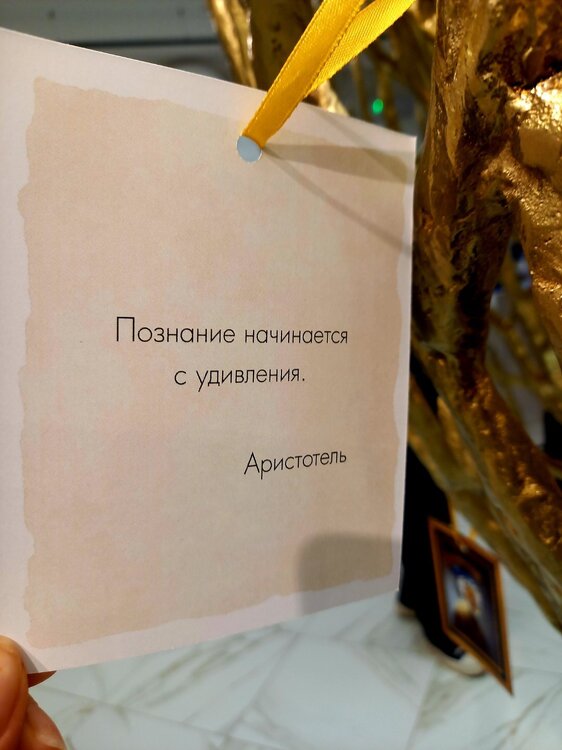 Познание начинается
с удивления.
Аристотель